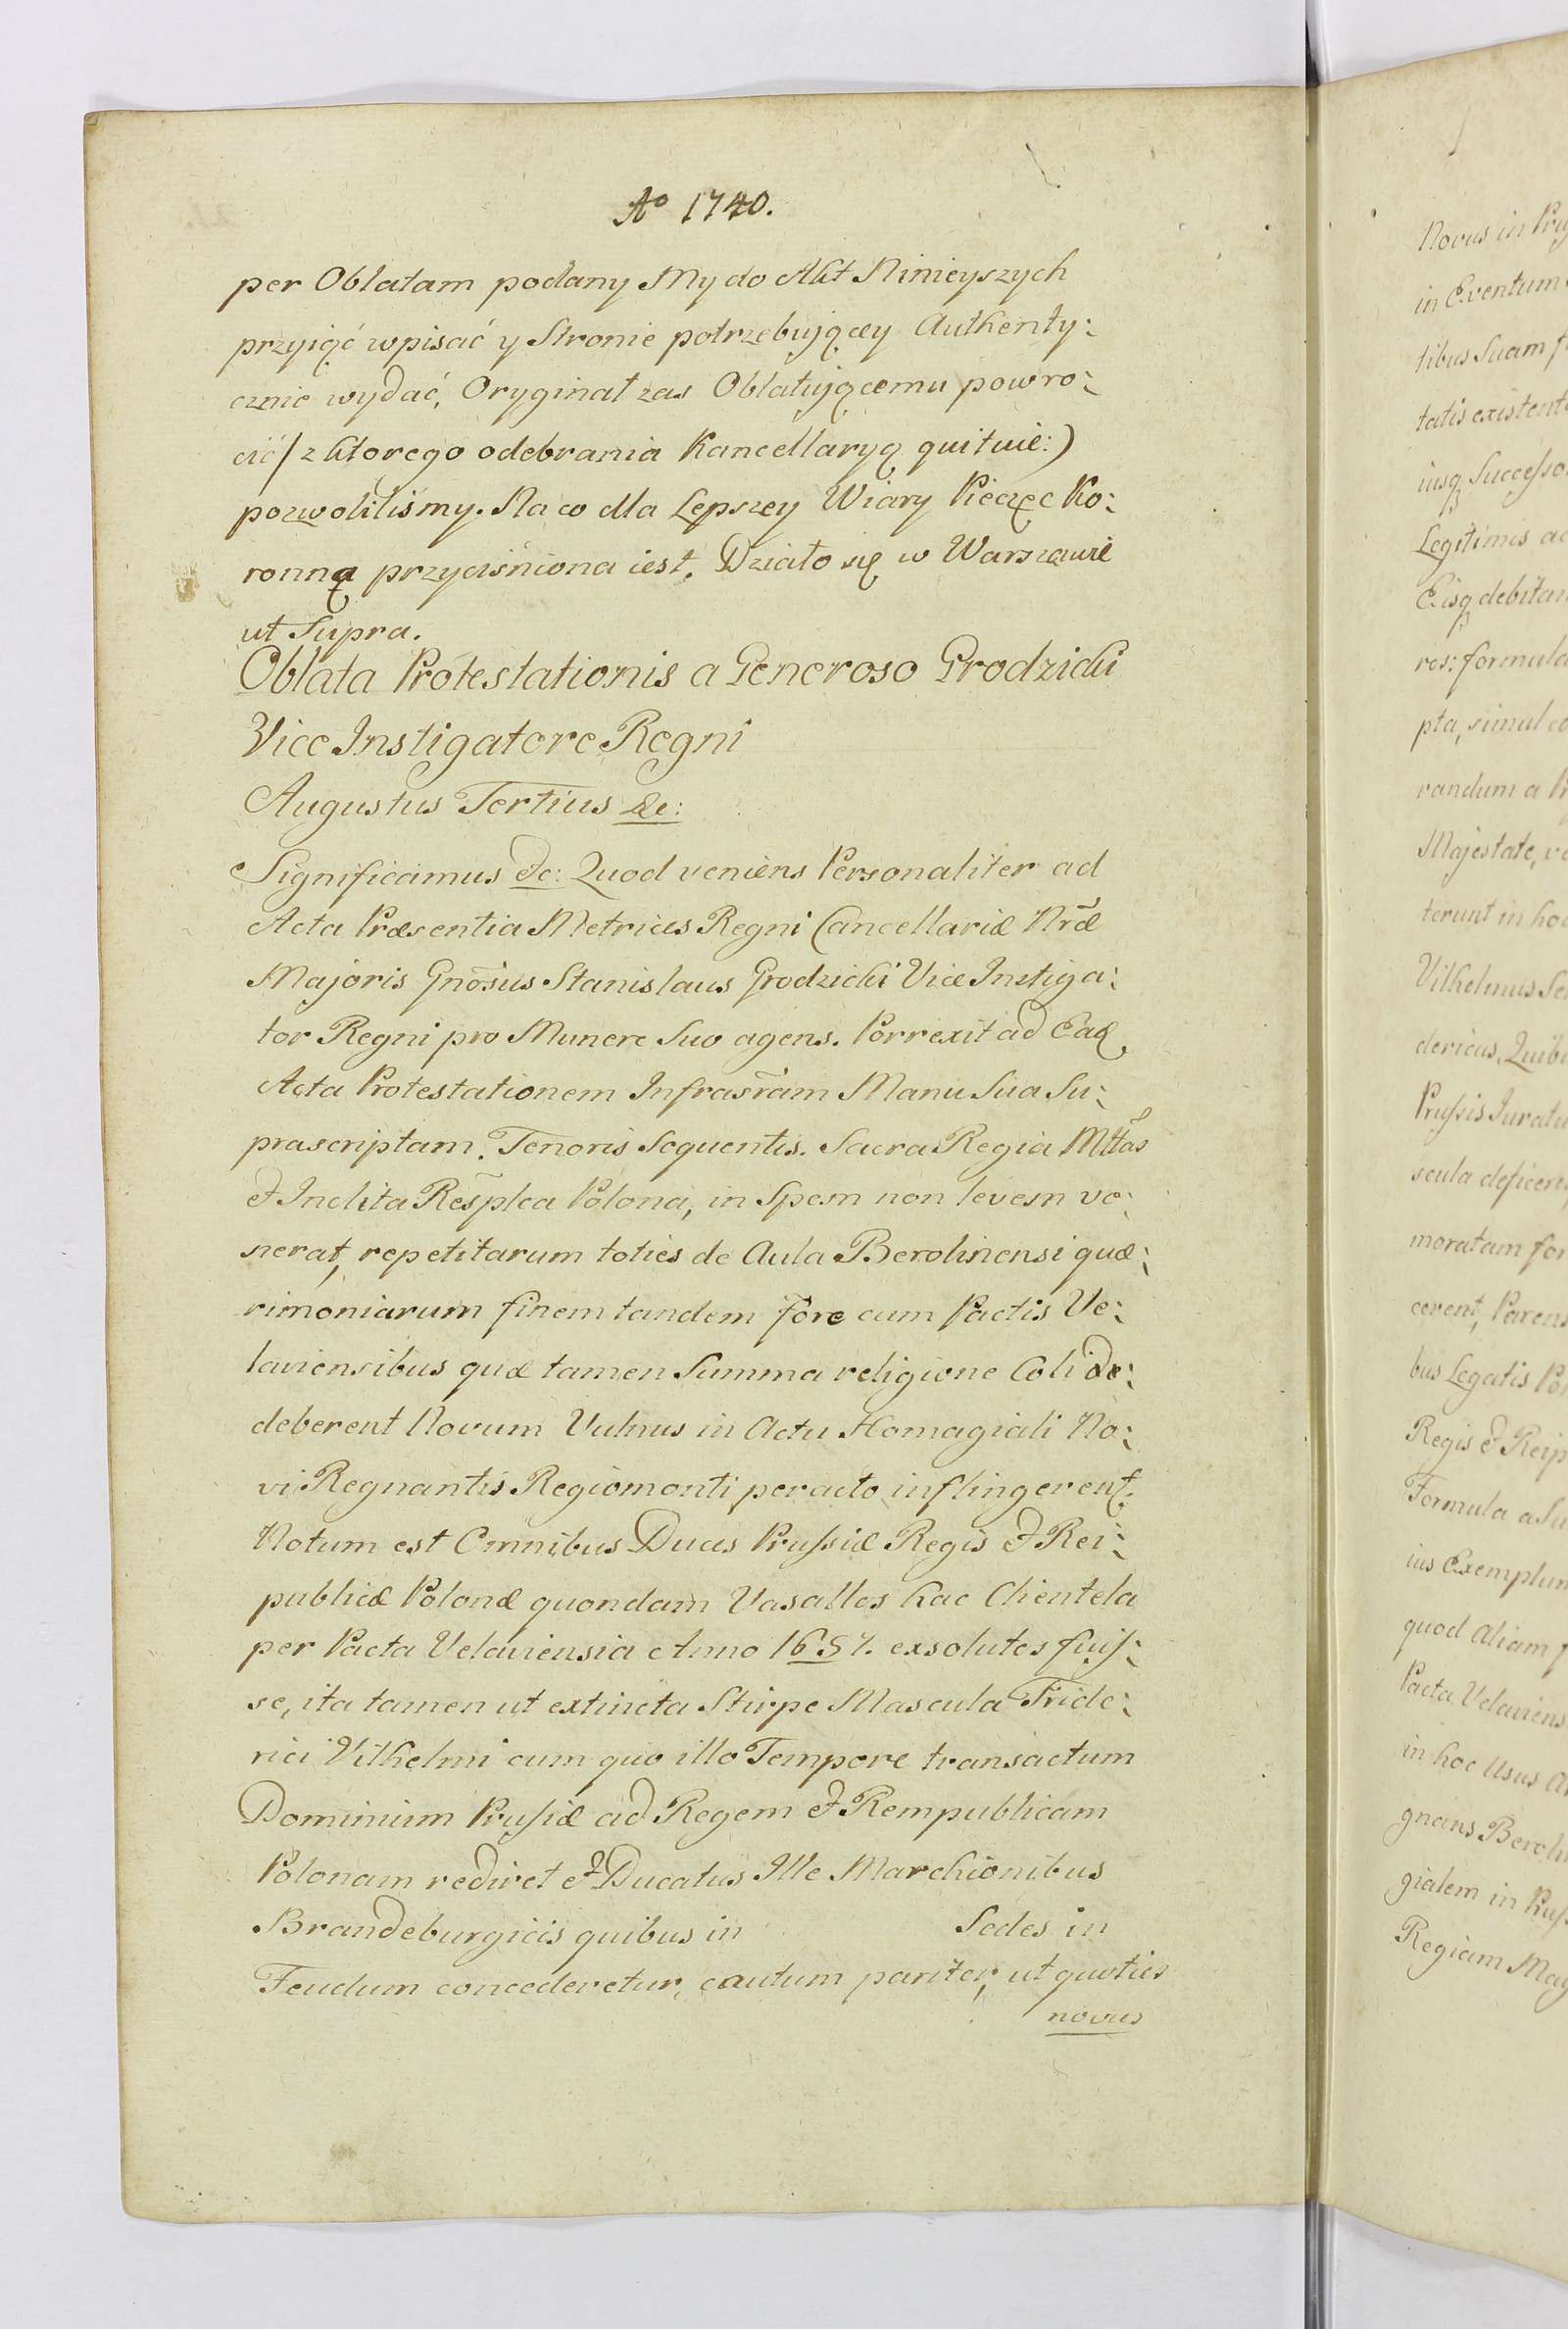 Aº 1740.
per Oblatam podany My do Akt Ninieyszych
przyiąć wpisać y Stronie potrzebuiącey Authenty:
cznie wydać, Oryginał zas Oblatuiącemu powro:
cić / z ktorego odebrania Kancellaryą quituie:)
pozwolilismy. Na co dla Lepszey Wiary Pieczęc Ko:
ronną przyciśniona iest. Działo się w Warszawie
ut Supra.
Oblata Protestationis a Generoso Grodzicki
Vice Instigatore Regni
Augustus Tertius &c:
Significamus &c: Quod veniens Personaliter ad
Acta Præsentia Metrices Regni Cancellariæ Nræ
Majoris Gnosus Stanislaus Grodzicki Vice Instiga:
tor Regni pro Munere Suo agens. Porrexit ad Eaq
Acta Protestationem Infrasram Manu Sua Su:
prascriptam. Tenoris Sequentis. Sacra Regia Mttas
& Inclita Resplca Polona, in Spem non levem ve:
nerat, repetitarum toties de Aula Berolinensi quæ:
rimoniarum finem tandem fore cum Pactis Ve:
laviensibus quæ tamen Summa religione Coli de:
deberent Novum Vulnus in Actu Homagiali No:
vi Regnantis Regiomonti peracto inflingerent.
Notum est Omnibus Duces Prussiæ Regis & Rei:
publicæ Polonæ quondam Vasallos hac Clientela
per Pacta Velaviensia Anno 1657. exsolutos fuis:
se, ita tamen ut extincta Stirpe Mascula Fride:
rici Vilhelmi cum quo illo Tempore transactum
Dominium Prusiæ ad Regem & Rempublicam
Polonam rediret & Ducatus Ille Marchionibus
Brandeburgicis quibus in Sedes in
Feudum concederetur, cautum pariter, ut quoties
novus
Novus in
in Eventum
tibus Suam
tatis existent
iusq Successo
Legitimis ac
Eisq debitam
res: formula
pta, simul co
randum a
Majestate, ve
terunt in hoc
Vilhelmus Se
dericus, Quib
Prussis Iurat
scula deficere
moratam for
cerent, Parens
bus Legatis Pol
Regis & Reip
Formula a Su
ius Exemplum
quod Aliam f
Pacta Velaviens
in hoc Usus
gnans Berolin
gialem in Prus
Regiam May